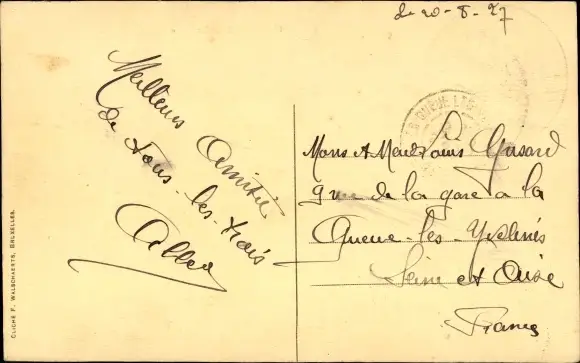 le 20-8-27
Meilleures Amitiés
de tous-les-trois
QUEUE LES
Mons et Mesdrs Grisard
9 rue de la gare a la
Queue-les-Yvelines
Seine et Oise
France
CLICHÉ F. WALSCHAERTS, BRUXELLES.